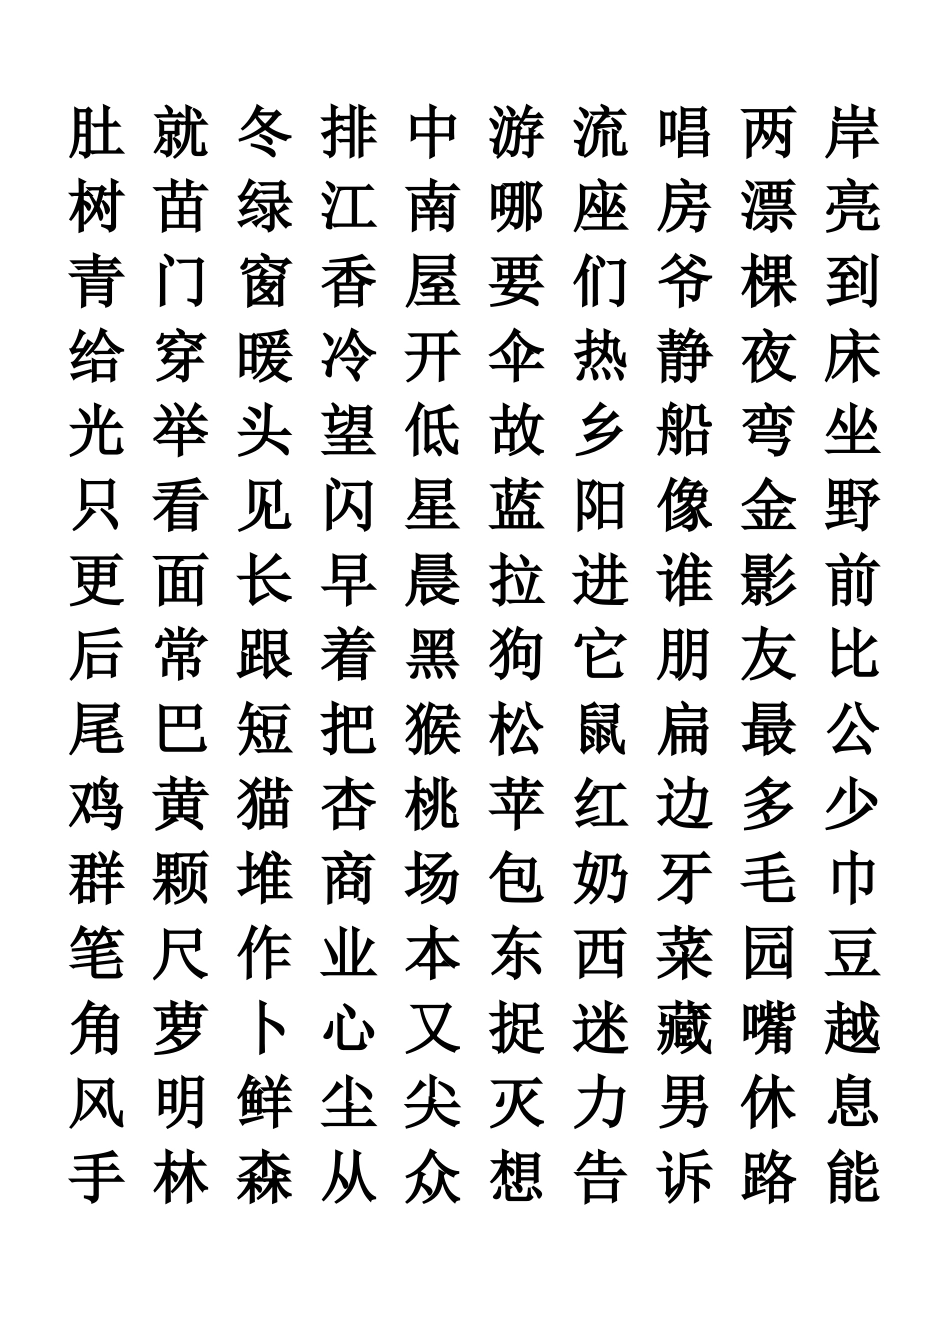 肚 就 冬 排 中 游 流 唱 两 岸
树 苗 绿 江 南 哪 座 房 漂 亮
青 门 窗 香 屋 要 们 爷 棵 到
给 穿 暖 冷 开 伞 热 静 夜 床
光 举 头 望 低 故 乡 船 弯 坐
只 看 见 闪 星 蓝 阳 像 金 野
更 面 长 早 晨 拉 进 谁 影 前
后 常 跟 着 黑 狗 它 朋 友 比
尾 巴 短 把 猴 松 鼠 扁 最 公
鸡 黄 猫 杏 桃 苹 红 边 多 少
群 颗 堆 商 场 包 奶 牙 毛 巾
笔 尺 作 业 本 东 西 菜 园 豆
角 萝 卜 心 又 捉 迷 藏 嘴 越
风 明 鲜 尘 尖 灭 力 男 休 息
手 林 森 从 众 想 告 诉 路 能